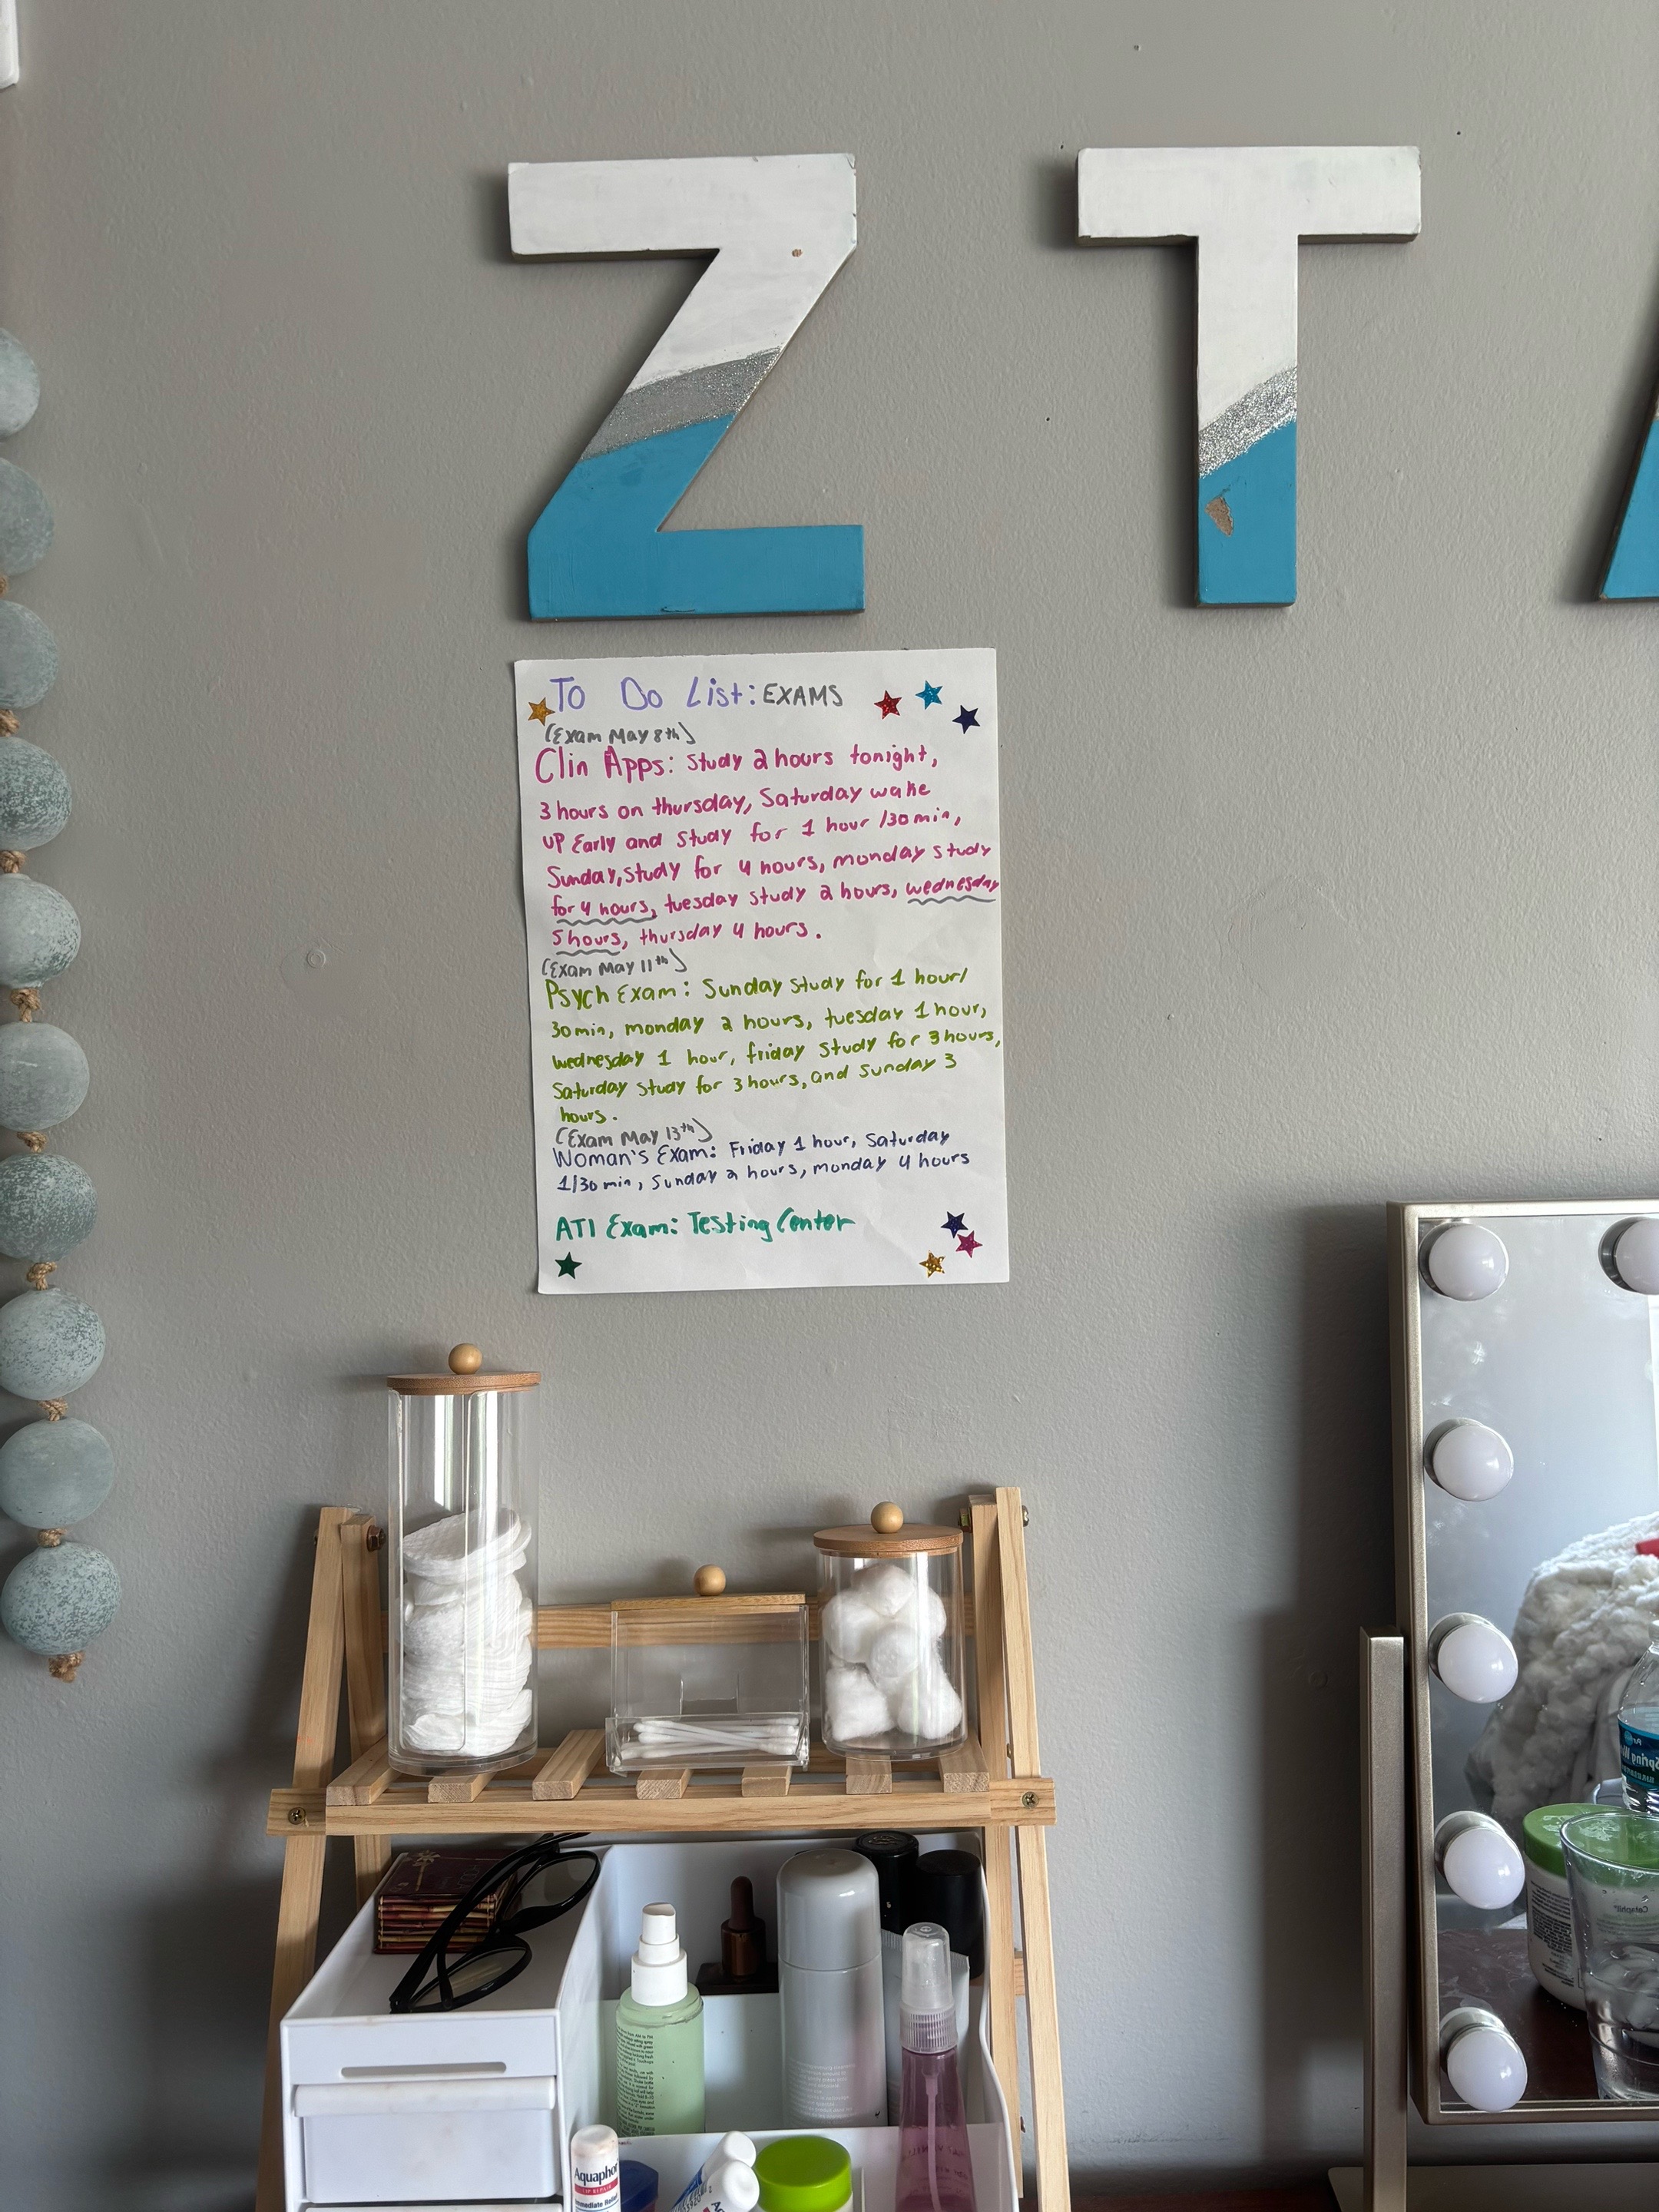 Z T
To Do List: EXAMS
(Exam May 8th)
Clin Apps: Study 2 hours tonight,
3 hours on thursday, Saturday wake
up Early and study for 1 hour /30 min,
Sunday, study for 4 hours, monday study
for 4 hours, tuesday study 2 hours, wednesday
5 hours, thursday 4 hours.
(Exam May 11th)
Psych Exam: Sunday study for 1 hour/
30 min, monday 2 hours, tuesday 1 hour,
wednesday 1 hour, friday study for 3 hours,
Saturday study for 3 hours, and sunday 3
hours.
(Exam May 13th)
Woman's Exam: Friday 1 hour, Saturday
1/30 min, Sunday 2 hours, monday 4 hours
ATI Exam: Testing Center
Cetaphil
Aquaphor
LIP REPAIR
Immediate Relief